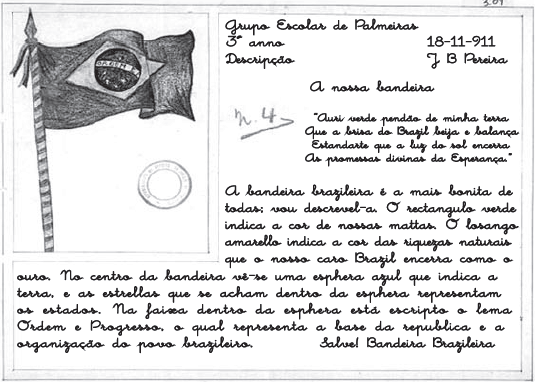 3.01
Grupo Escolar de Palmeiras
3º anno 18-11-911
Descripção J B Pereira
A nossa bandeira
n. 4
"Auri verde pendão de minha terra
Que a brisa do Brazil beija e balança
Estandarte que a luz do sol encerra
As promessas divinas da Esperança."
A bandeira brazileira é a mais bonita de
todas; vou descrevel-a. O rectangulo verde
indica a cor de nossas mattas. O losango
amarello indica a cor das riquezas naturais
que o nosso caro Brazil encerra como o
ouro. No centro da bandeira vê-se uma esphera azul que indica a
terra, e as estrellas que se acham dentro da esphera representam
os estados. Na faixa dentro da esphera está escripto o lema
Ordem e Progresso, o qual representa a base da republica e a
organização do povo brazileiro. Salve! Bandeira Brazileira